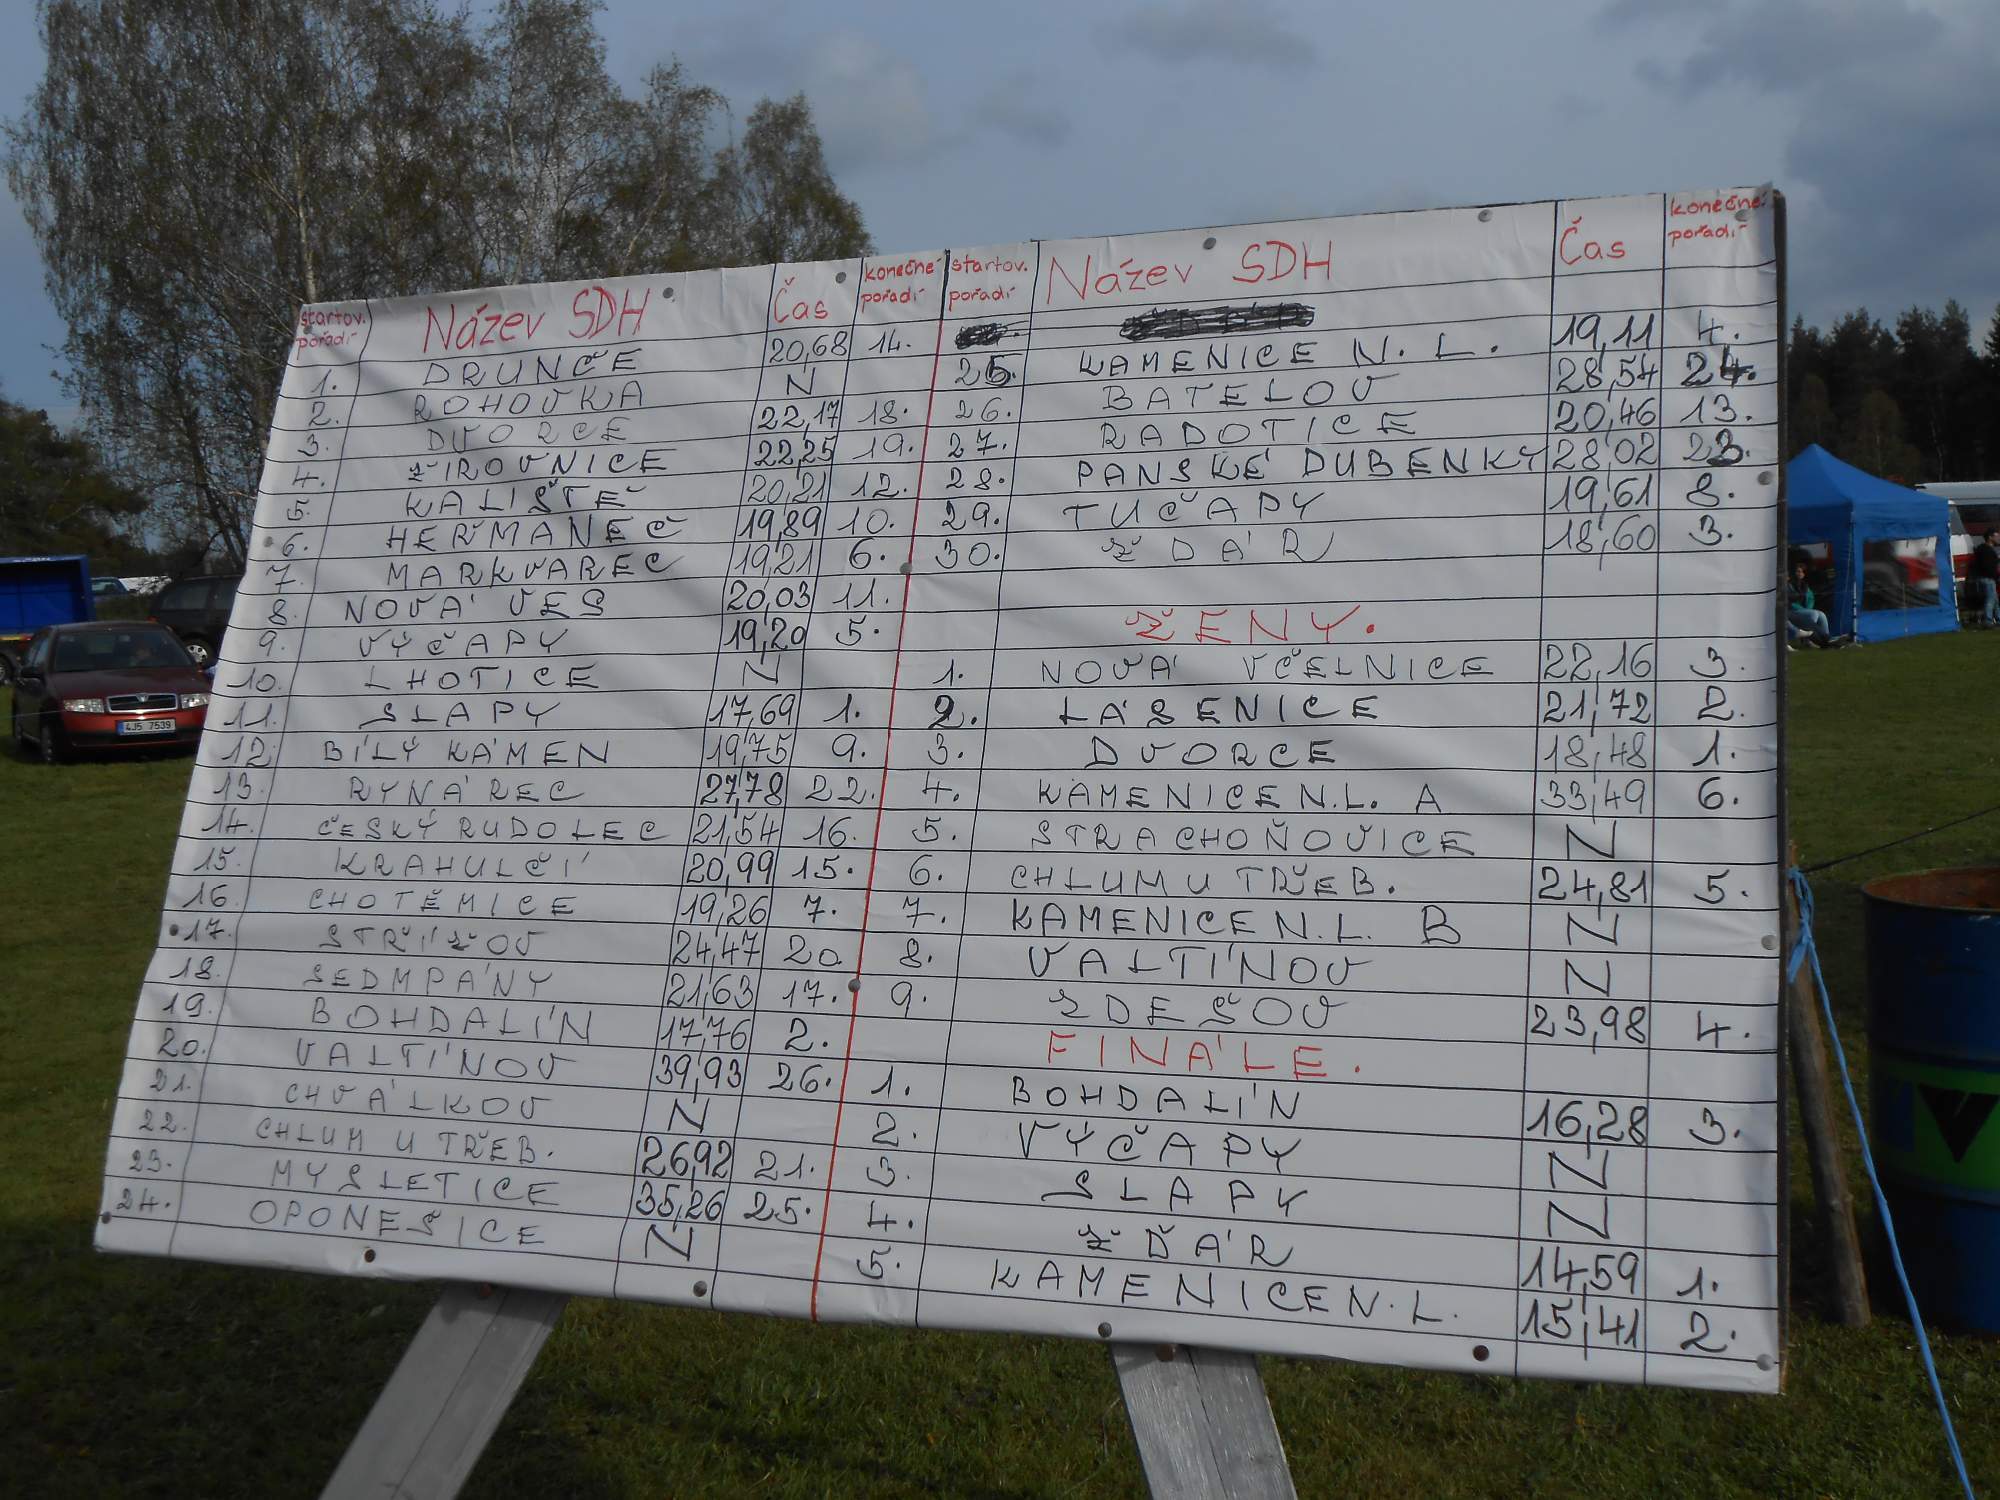 startov. pořadí Název SDH Čas konečné pořadí
1. DRUNČE 20,68 14.
2. ROHOVKA N
3. DVORCE 22,17 18.
4. ŽIROVNICE 22,25 19.
5. KALIŠTĚ 20,21 12.
6. HEŘMANEČ 19,89 10.
7. MARKVAREC 19,21 6.
8. NOVÁ VES 20,03 11.
9. VÝČAPY 19,20 5.
10. LHOTICE N
11. SLAPY 17,69 1.
12. BÍLÝ KÁMEN 19,75 9.
13. RYNÁREC 27,78 22.
14. ČESKÝ RUDOLEC 21,54 16.
15. KRAHULČÍ 20,99 15.
16. CHOTĚMICE 19,26 7.
17. STŘÍŽOV 24,47 20
18. SEDMPÁNY 21,63 17.
19. BOHDALÍN 17,76 2.
20. VALTÍNOV 39,93 26.
21. CHVÁLKOV N
22. CHLUM U TŘEB. 26,92 21.
23. MYSLETICE 35,26 25.
24. OPONEŠICE N
startov. pořadí Název SDH Čas konečné pořadí
25. KAMENICE N. L. 19,11 4.
26. BATELOV 28,54 24.
27. RADOTICE 20,46 13.
28. PANSKÉ DUBENKY 28,02 23.
29. TUČAPY 19,61 8.
30. ŽDÁR 18,60 3.
ŽENY.
1. NOVÁ VČELNICE 22,16 3.
2. LÁSENICE 21,72 2.
3. DVORCE 18,48 1.
4. KAMENICE N.L. A 33,49 6.
5. STRACHOŇOVICE N
6. CHLUM U TŘEB. 24,81 5.
7. KAMENICE N.L. B N
8. VALTÍNOV N
9. ZDEŠOV 23,98 4.
FINÁLE.
1. BOHDALÍN 16,28 3.
2. VÝČAPY N
3. SLAPY N
4. ŽĎÁR 14,59 1.
5. KAMENICE N.L. 15,41 2.
4J5 7539